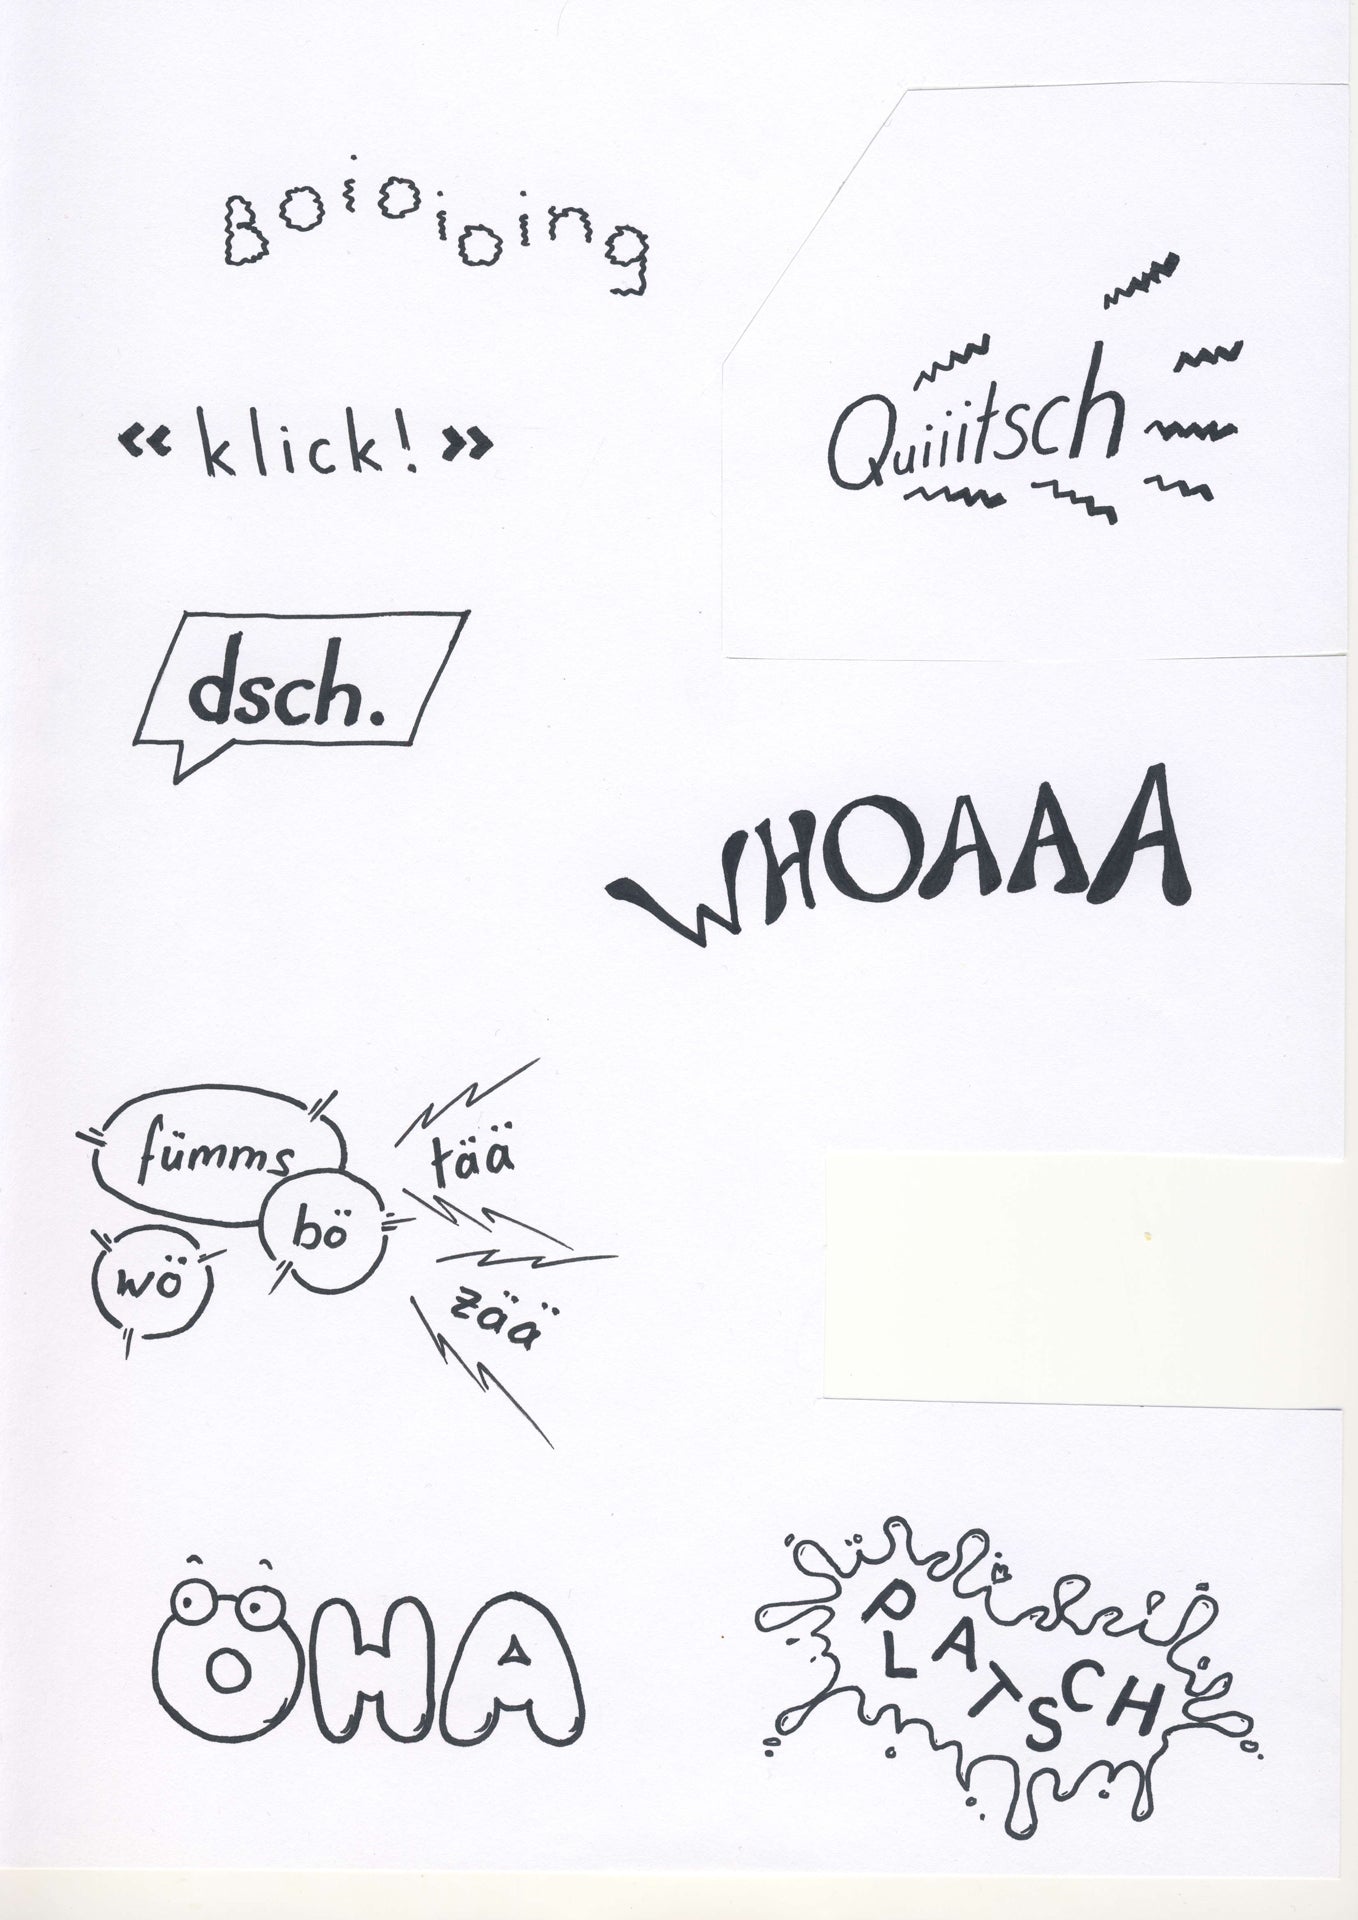 Boioioing
Quiiitsch
« klick! »
dsch.
WHOAAA
fümms
bö
wö
tää
zää
ÖHA
PLATSCH